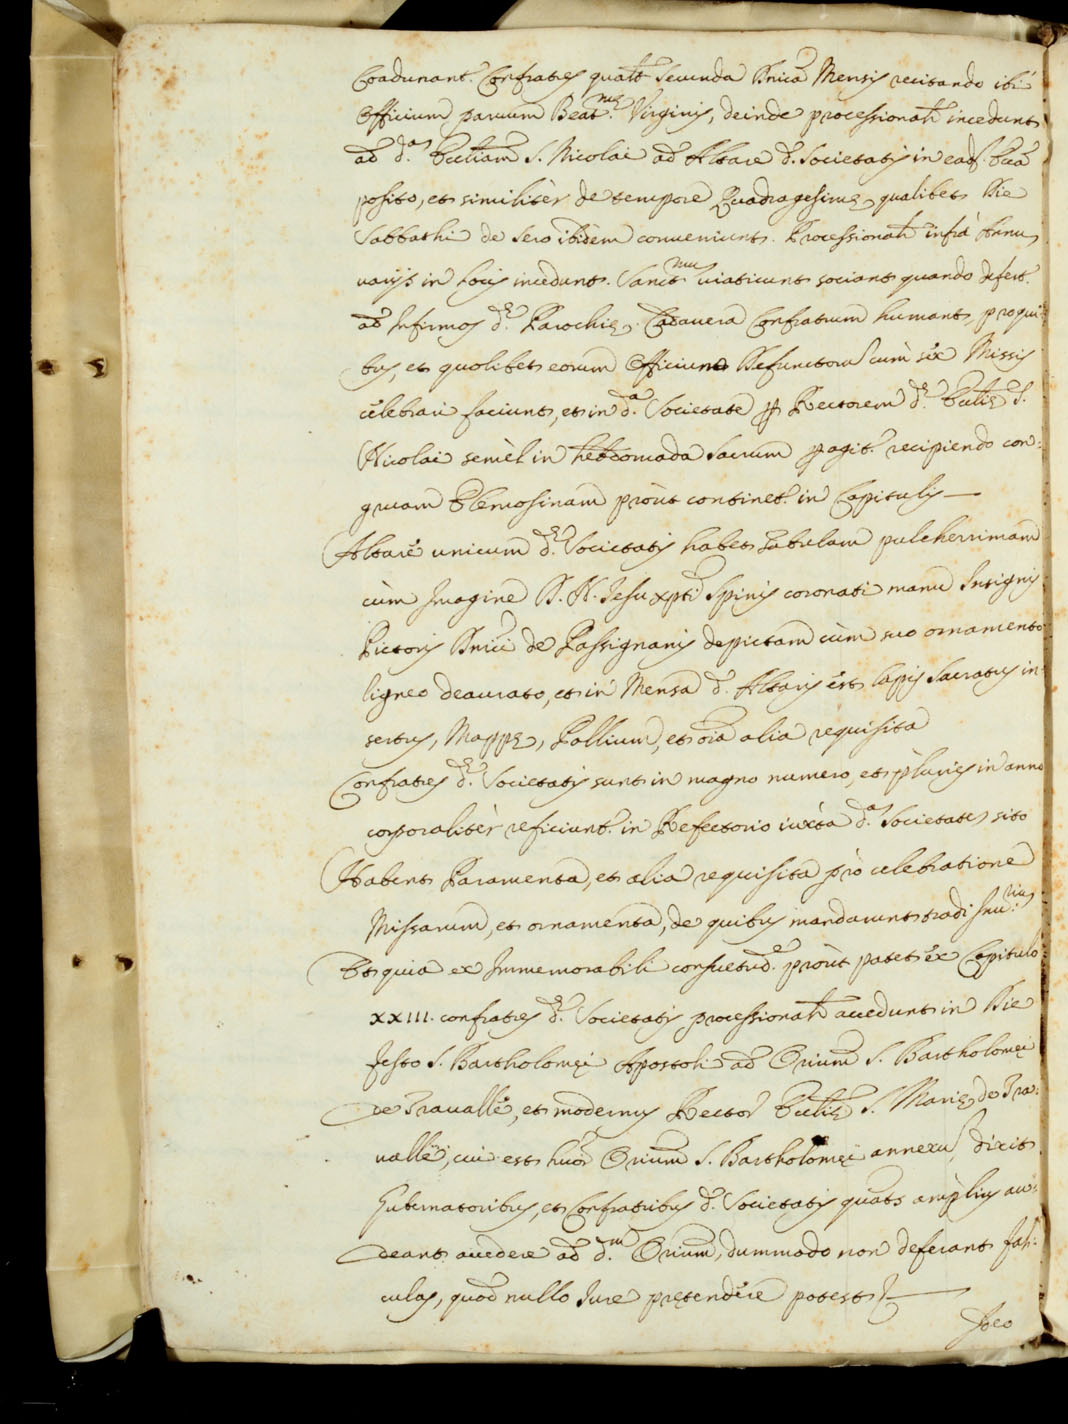 Coadunant.r Confratres qualt secunda Dnica Mensis recitando ibi
Officium paruum Beat.me Virginis, deinde processionalr incedunt
ad d.am Eccliam S. Nicolai ad Altare d. Societatis in ead. Ecca
posito, et similitèr de tempore Quadragesimę qualibet Die
Sabbathi de sero ibidèm conueniunt. Processionalr infrà Annu
varijs in Locis incedunt. Sanct.mum uiaticum sociant quando defert.r
ad Infirmos d.ę Parochię. Cadauera Confratrum humant, pro qui:
bus, et quolibet eorum Officium Defunctorū cum sex Missis
celebrari faciunt, et in d.a Societate p Rectorem d.ę Ecclię S.
Nicolai semèl in hebdomada Sacrum pagit.r recipiendo con:
gruam Elemosinam proùt continet.r in Capitulis
Altare unicum d.ę Societatis habet Tabulam pulcherrimam
cùm Imagine D. N. Jesu Xpti Spinis coronati manu Insignis
Pictoris Dnici de Passignanis depictam cùm suo ornamento
ligneo deaurato, et in Mensa d. Altaris est lapis Sacratus in
sertus, Mappę, Pallium, et oīa alia requisita
Confratres d.ę Societatis sunt in magno numero, et plures in anno
corporalitèr reficiunt.r in Refectorio iuxta d.a Societate sito
Habent Paramenta, et alia requisita prò celebratione
Missarum, et ornamenta, de quibus mandarunt tradi Inu.rium
Et quia ex Immemorabili consuetud.e proùt patet ex Capitulo
XXIII. confratres d.ę Societatis processionalr accedunt in Die
festo S. Bartholomęi Apostoli ad Orium S. Bartholomęi
de Traualle, et modernus Rector Ecclię S. Marię de Tra:
ualle, cui est huō Orium S. Bartholomęi annexū, dixit
Gubernatoribus, et Confratribus d. Societatis quats amplius au:
deant accedere ad d.um Orium, dummodo non deferant fas:
culas, quod nullo Iure prętendere potest
Ideo